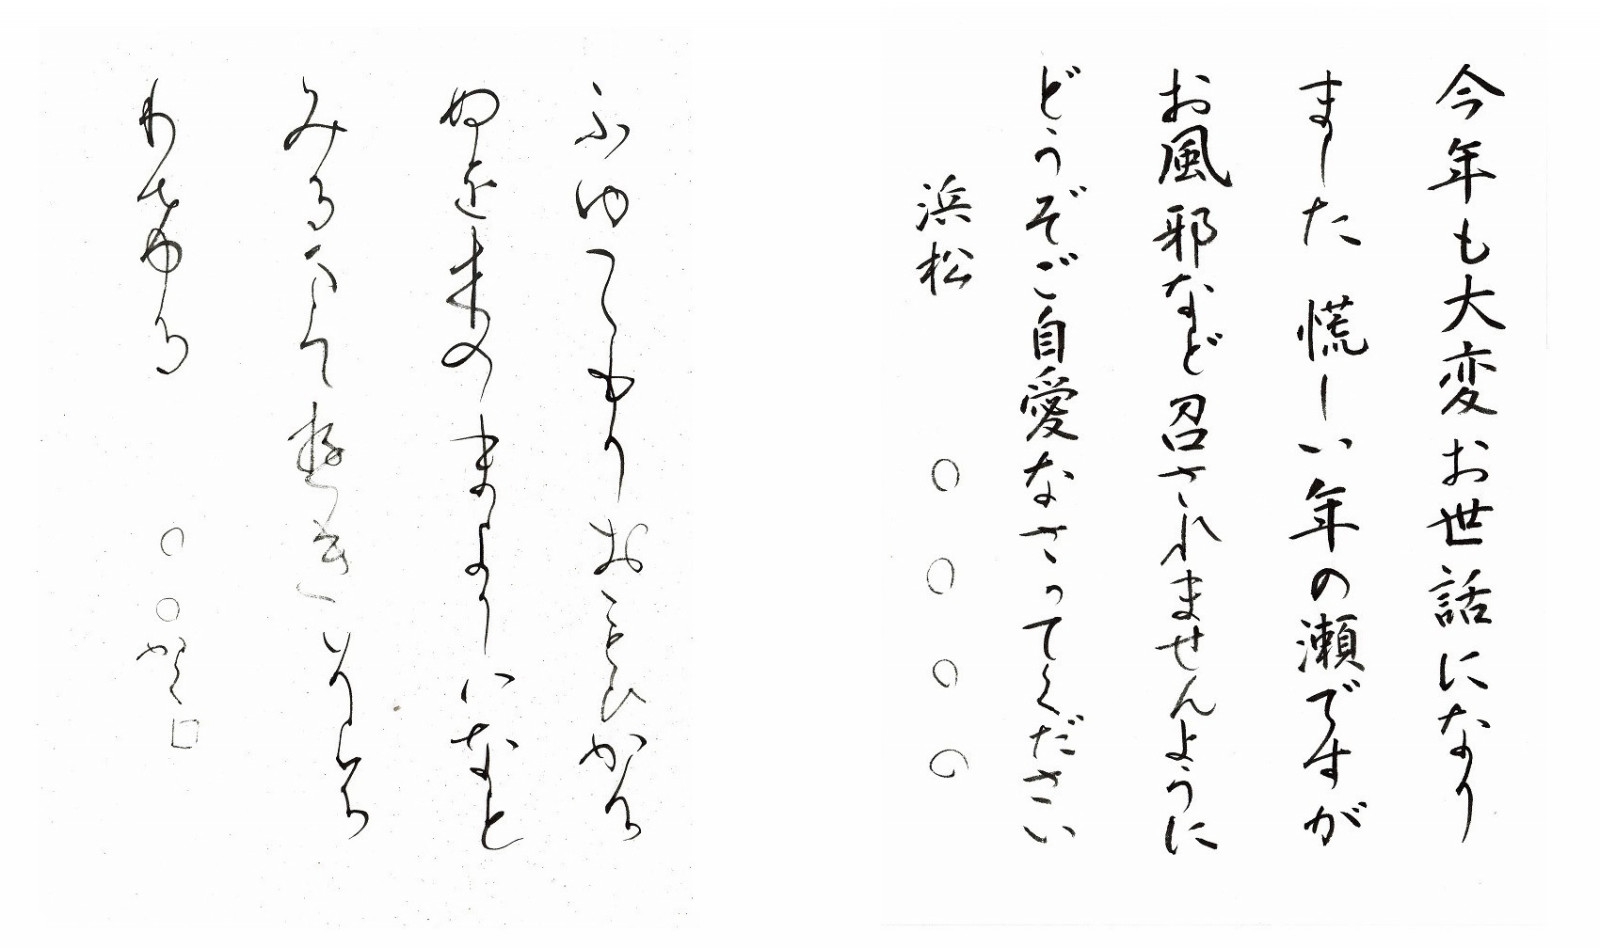 今年も大変お世話になり
ました 慌しい年の瀬ですが
お風邪など召されませんように
どうぞご自愛なさってください
浜松 ○○○○
ふゆこもりおもひかけ
ぬを木のまよりハなと
みるまて
○○かく□